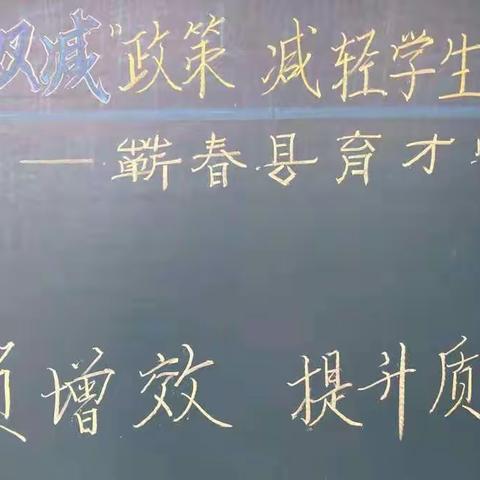 双减"政策 减轻学生
——蕲春县育才
增效 提升质